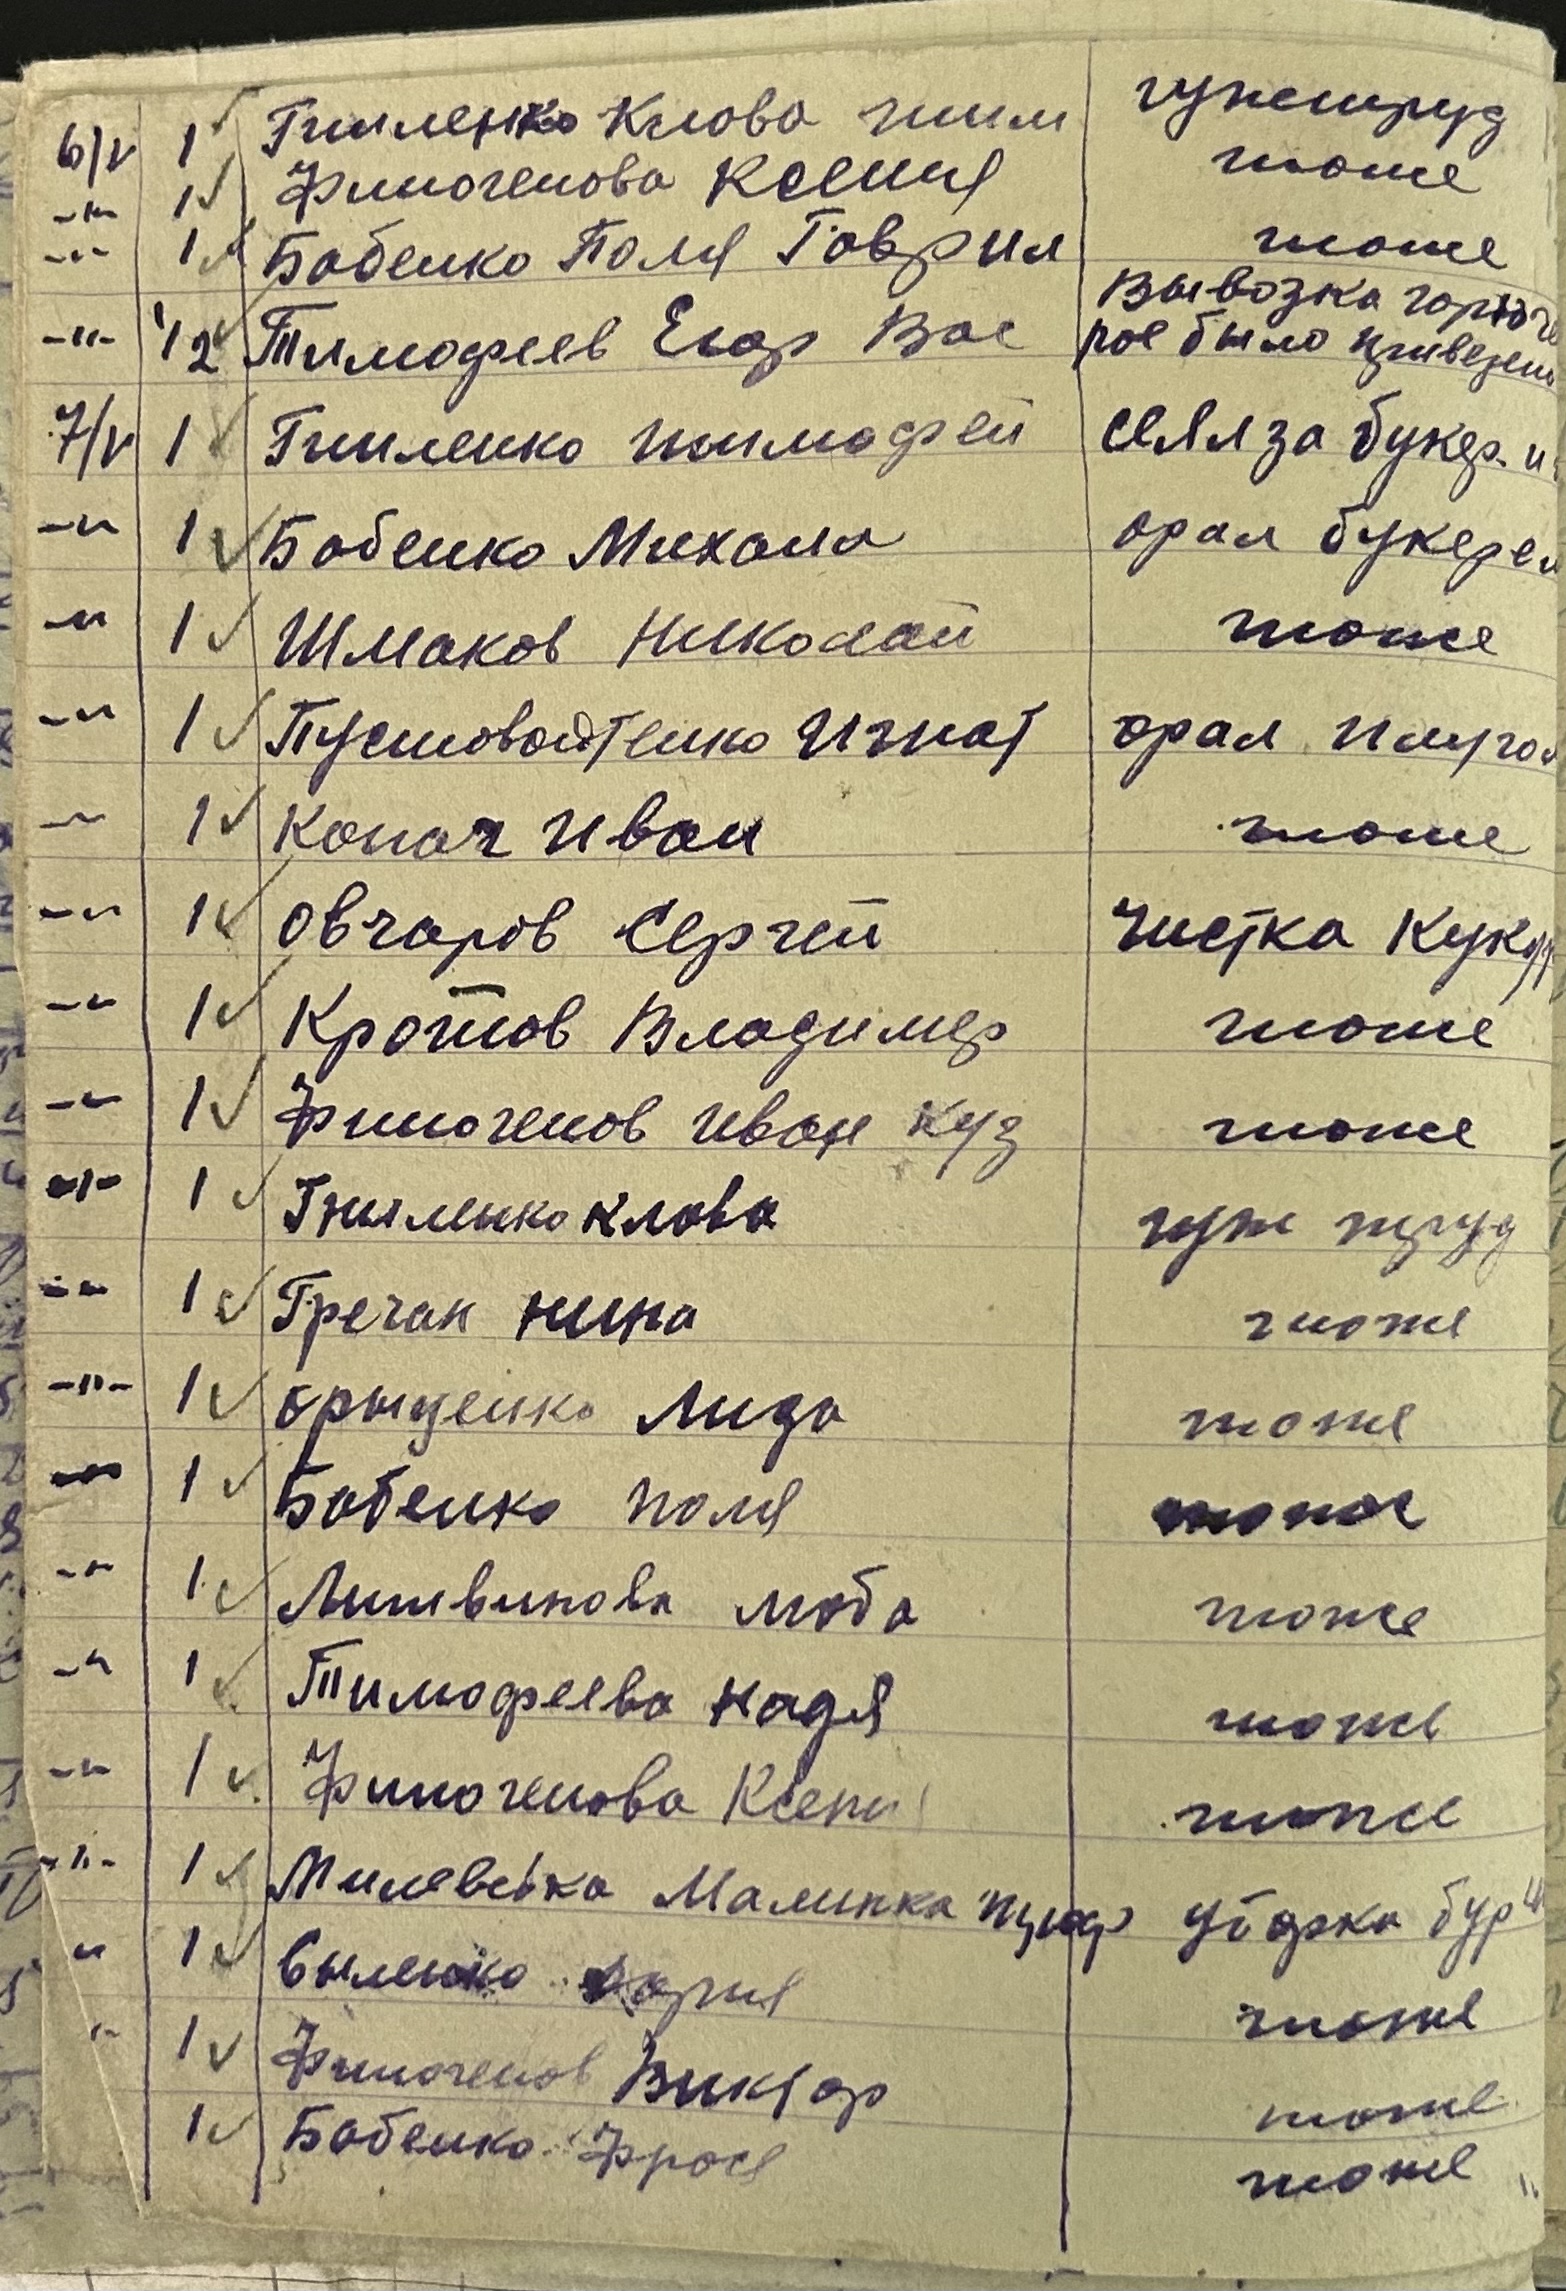 6/V 1 Гниленко Клава тим гужтруд
-"- 1 Финогенова Ксения тоже
-"- 1 Бабенко Поля Гаврил тоже
-"- 1/2 Тимофеев Егор Вас Вывозка горюче
рое было привезен
7/V 1 Гниленко тимофей сеял за букер.
-"- 1 Бабенко Михаил орал букером
-"- 1 Шмаков Николай тоже
-"- 1 Пустовойтенко Игнат орал плугом
-"- 1 Копач Иван тоже
-"- 1 Овчаров Сергей чистка Кукур
-"- 1 Кротов Владимер тоже
-"- 1 Финогенов иван Куз тоже
-"- 1 Гниленко клава гуж труд
-"- 1 Гречан нина тоже
-"- 1 Лида тоже
-"- 1 Бабенко поля тоже
-"- 1 Литвинова люба тоже
-"- 1 Тимофеева надя тоже
-"- 1 Финогенова Ксени тоже
-"- 1 Милевська Малинка уборка бур
" 1 тоже
" 1 Финогенов Виктор тоже
1 Бабенко Фрося тоже "